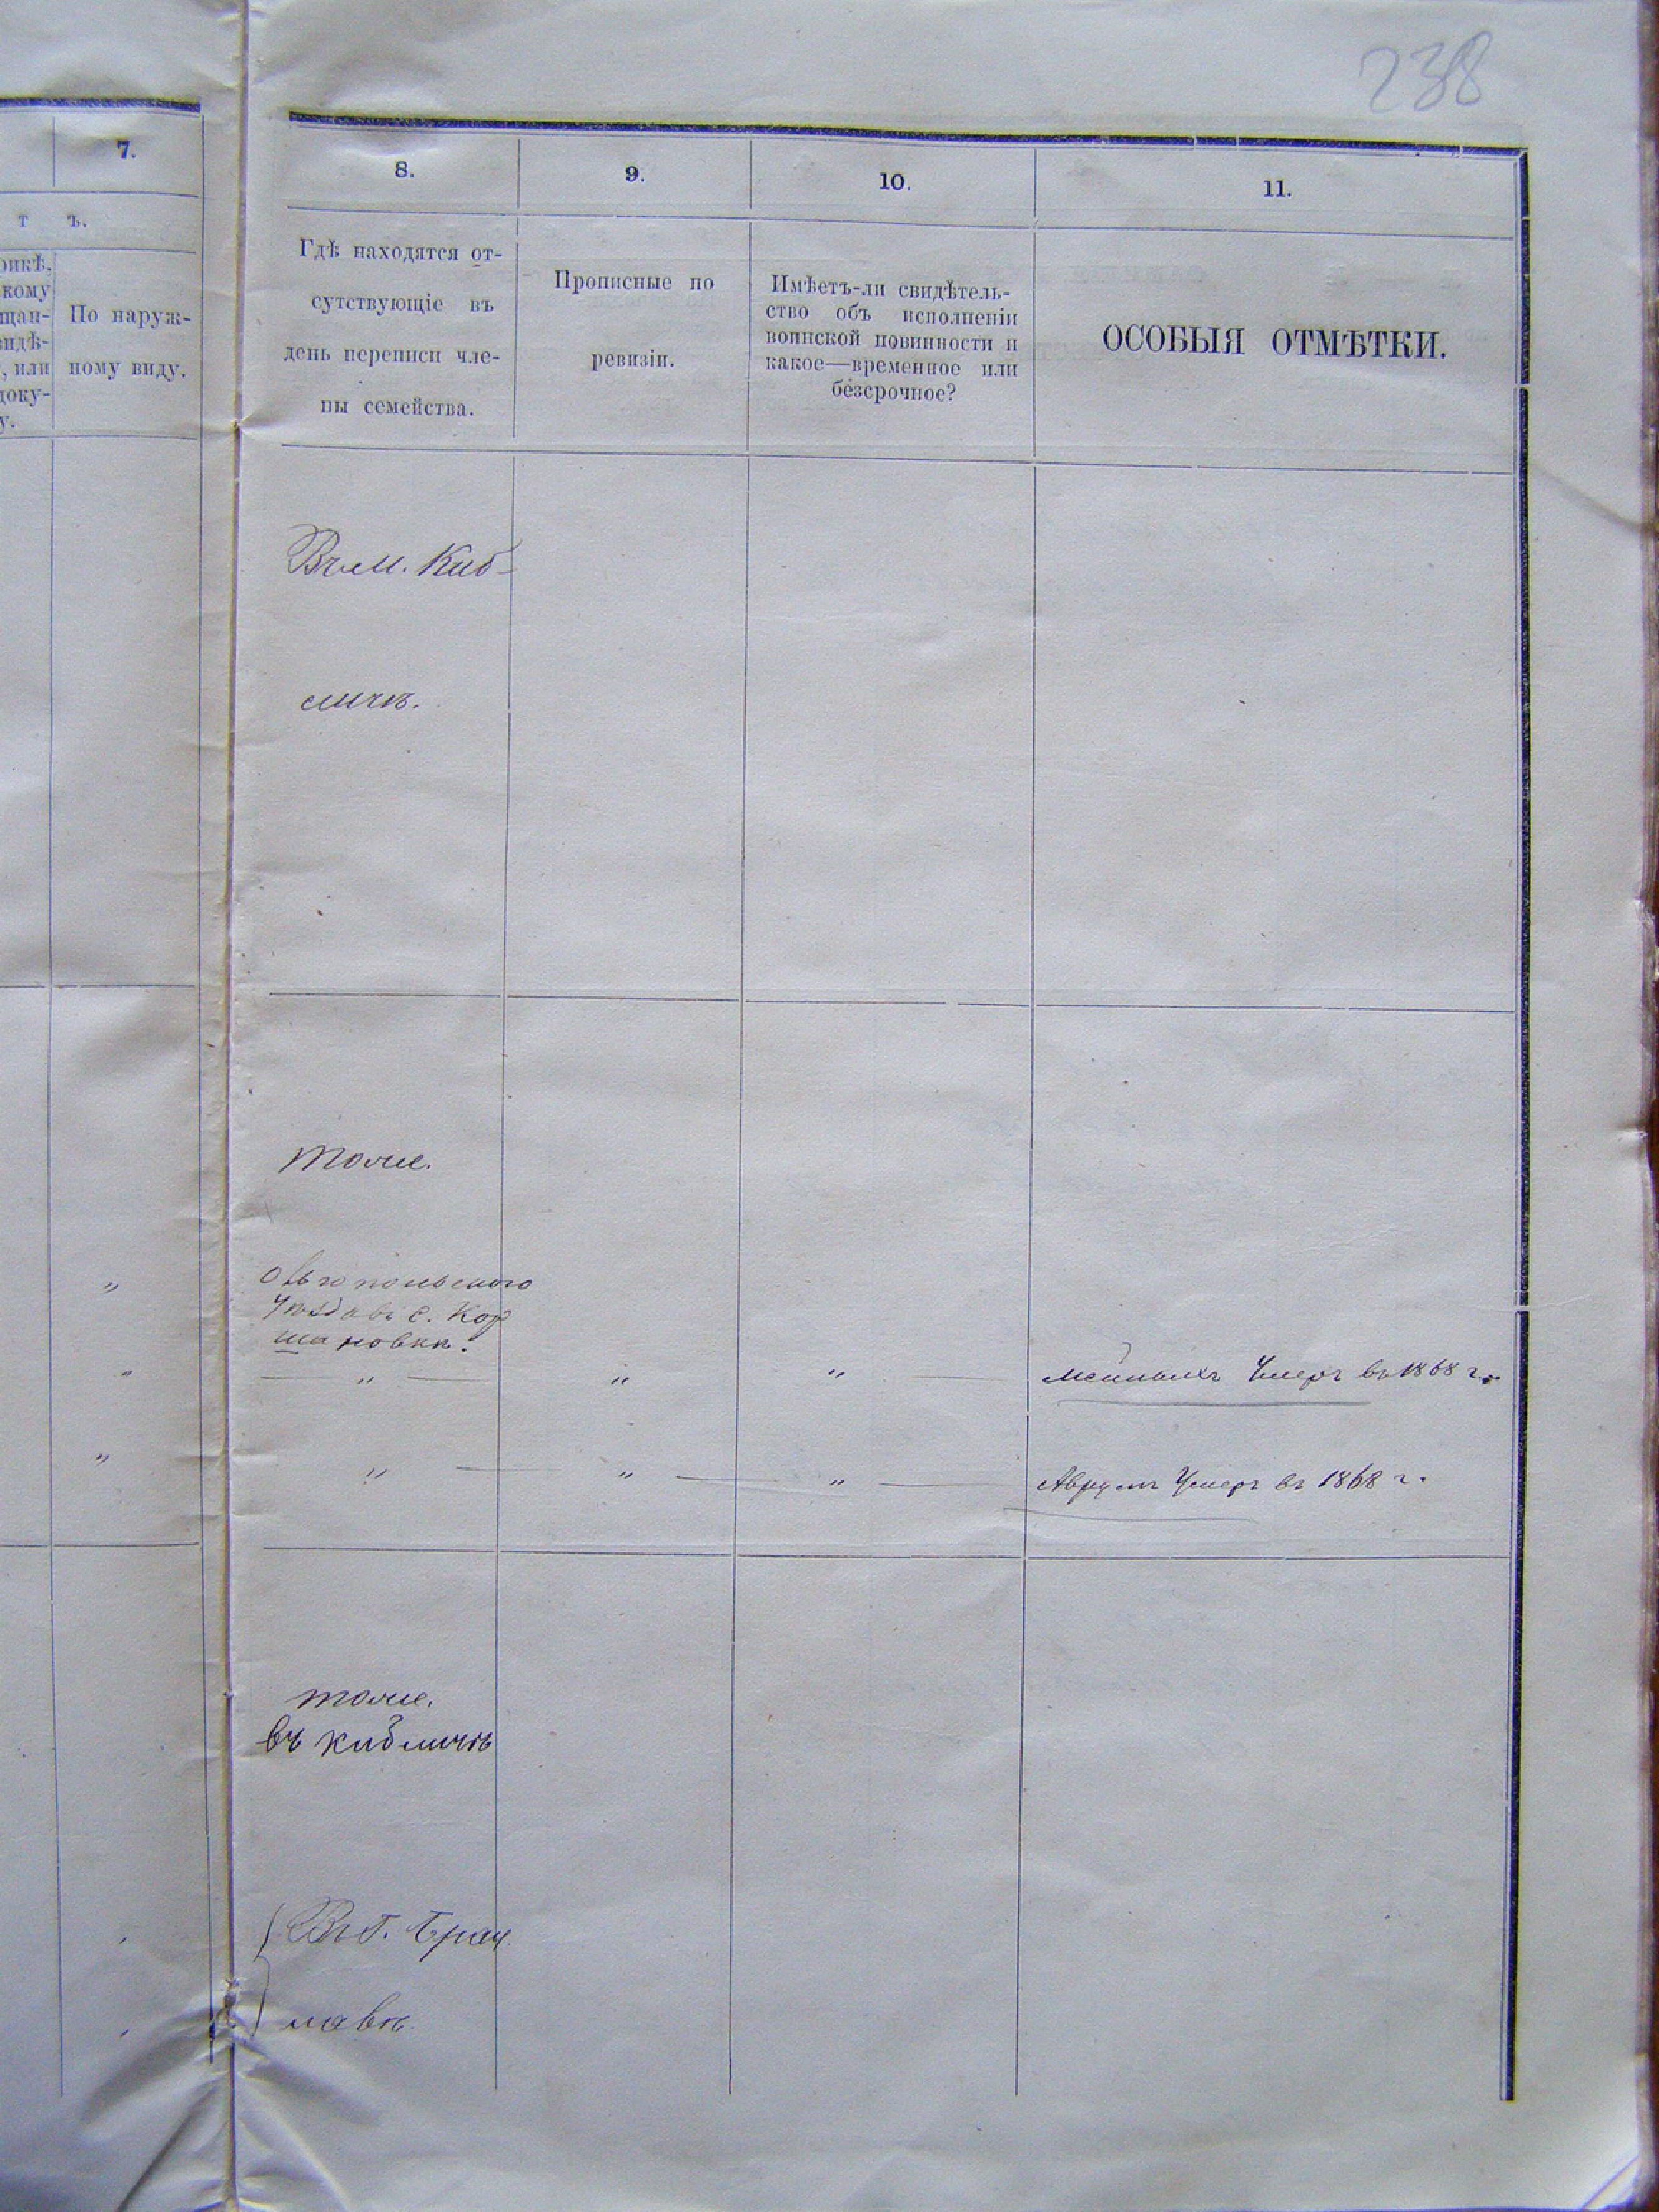 238
7.
т ъ.
рикѣ,
кому
щан-
видѣ-
, или
доку-
у.
По наруж-
ному виду.
8.
9.
10.
11.
Гдѣ находятся от-
сутствующіе въ
день переписи чле-
ны семейства.
Прописные по
ревизіи.
Имѣетъ-ли свидѣтель-
ство объ исполненіи
воинской повинности и
какое—временное или
безсрочное?
ОСОБЫЯ ОТМѢТКИ.
Въ м. Киб-
личѣ.
тоже.
" Ольгопольскаго
Уѣзда въ с. Кор
шановкѣ.
" " " " Умеръ въ 1868 г.
" " " " Аврумъ Умеръ въ 1868 г.
тоже.
въ Кибличѣ
Въ г. Брац
лавѣ.